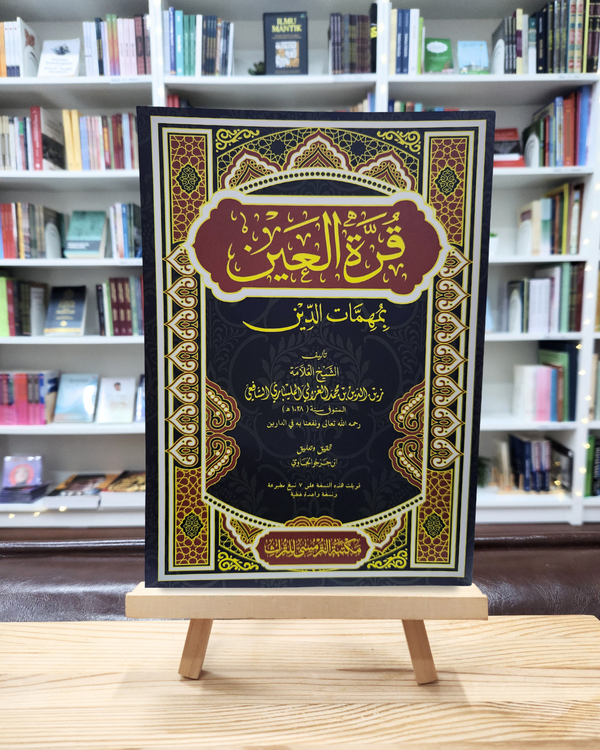 ILMU
MANTIK
قُرَّةُ العَيْن
بِمُهِمَّاتِ الدِّيْن
تأليف
الشَّيْخ العَلَّامَة
زين الدين بن محمد الغزولي المليباري الشافعي
المتوفى سنة (١٠٢٨ هـ)
رحمه الله تعالى ونفعنا به في الدارين
تحقيق وتعليق
ابن حرجو الجاوي
قوبلت هذه النسخة على ٧ نسخ مطبوعة
ونسخة واحدة خطية
مكتبة الترمسي للتراث